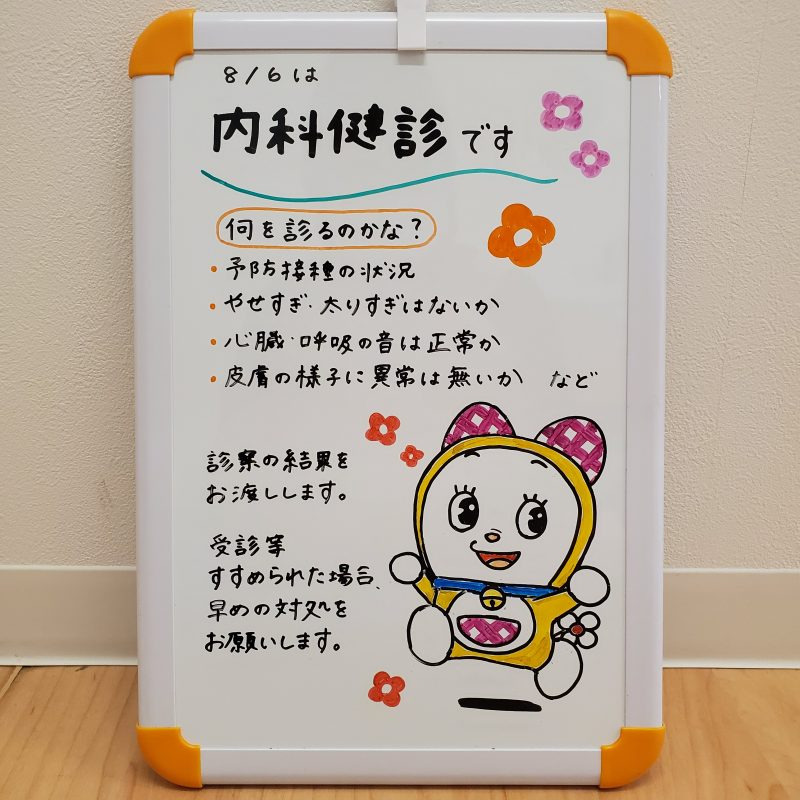 8/6は
内科健診です
何を診るのかな?
・予防接種の状況
・やせすぎ・太りすぎはないか
・心臓・呼吸の音は正常か
・皮膚の様子に異常は無いか など
診察の結果を
お渡しします。
受診等
すすめられた場合、
早めの対処を
お願いします。